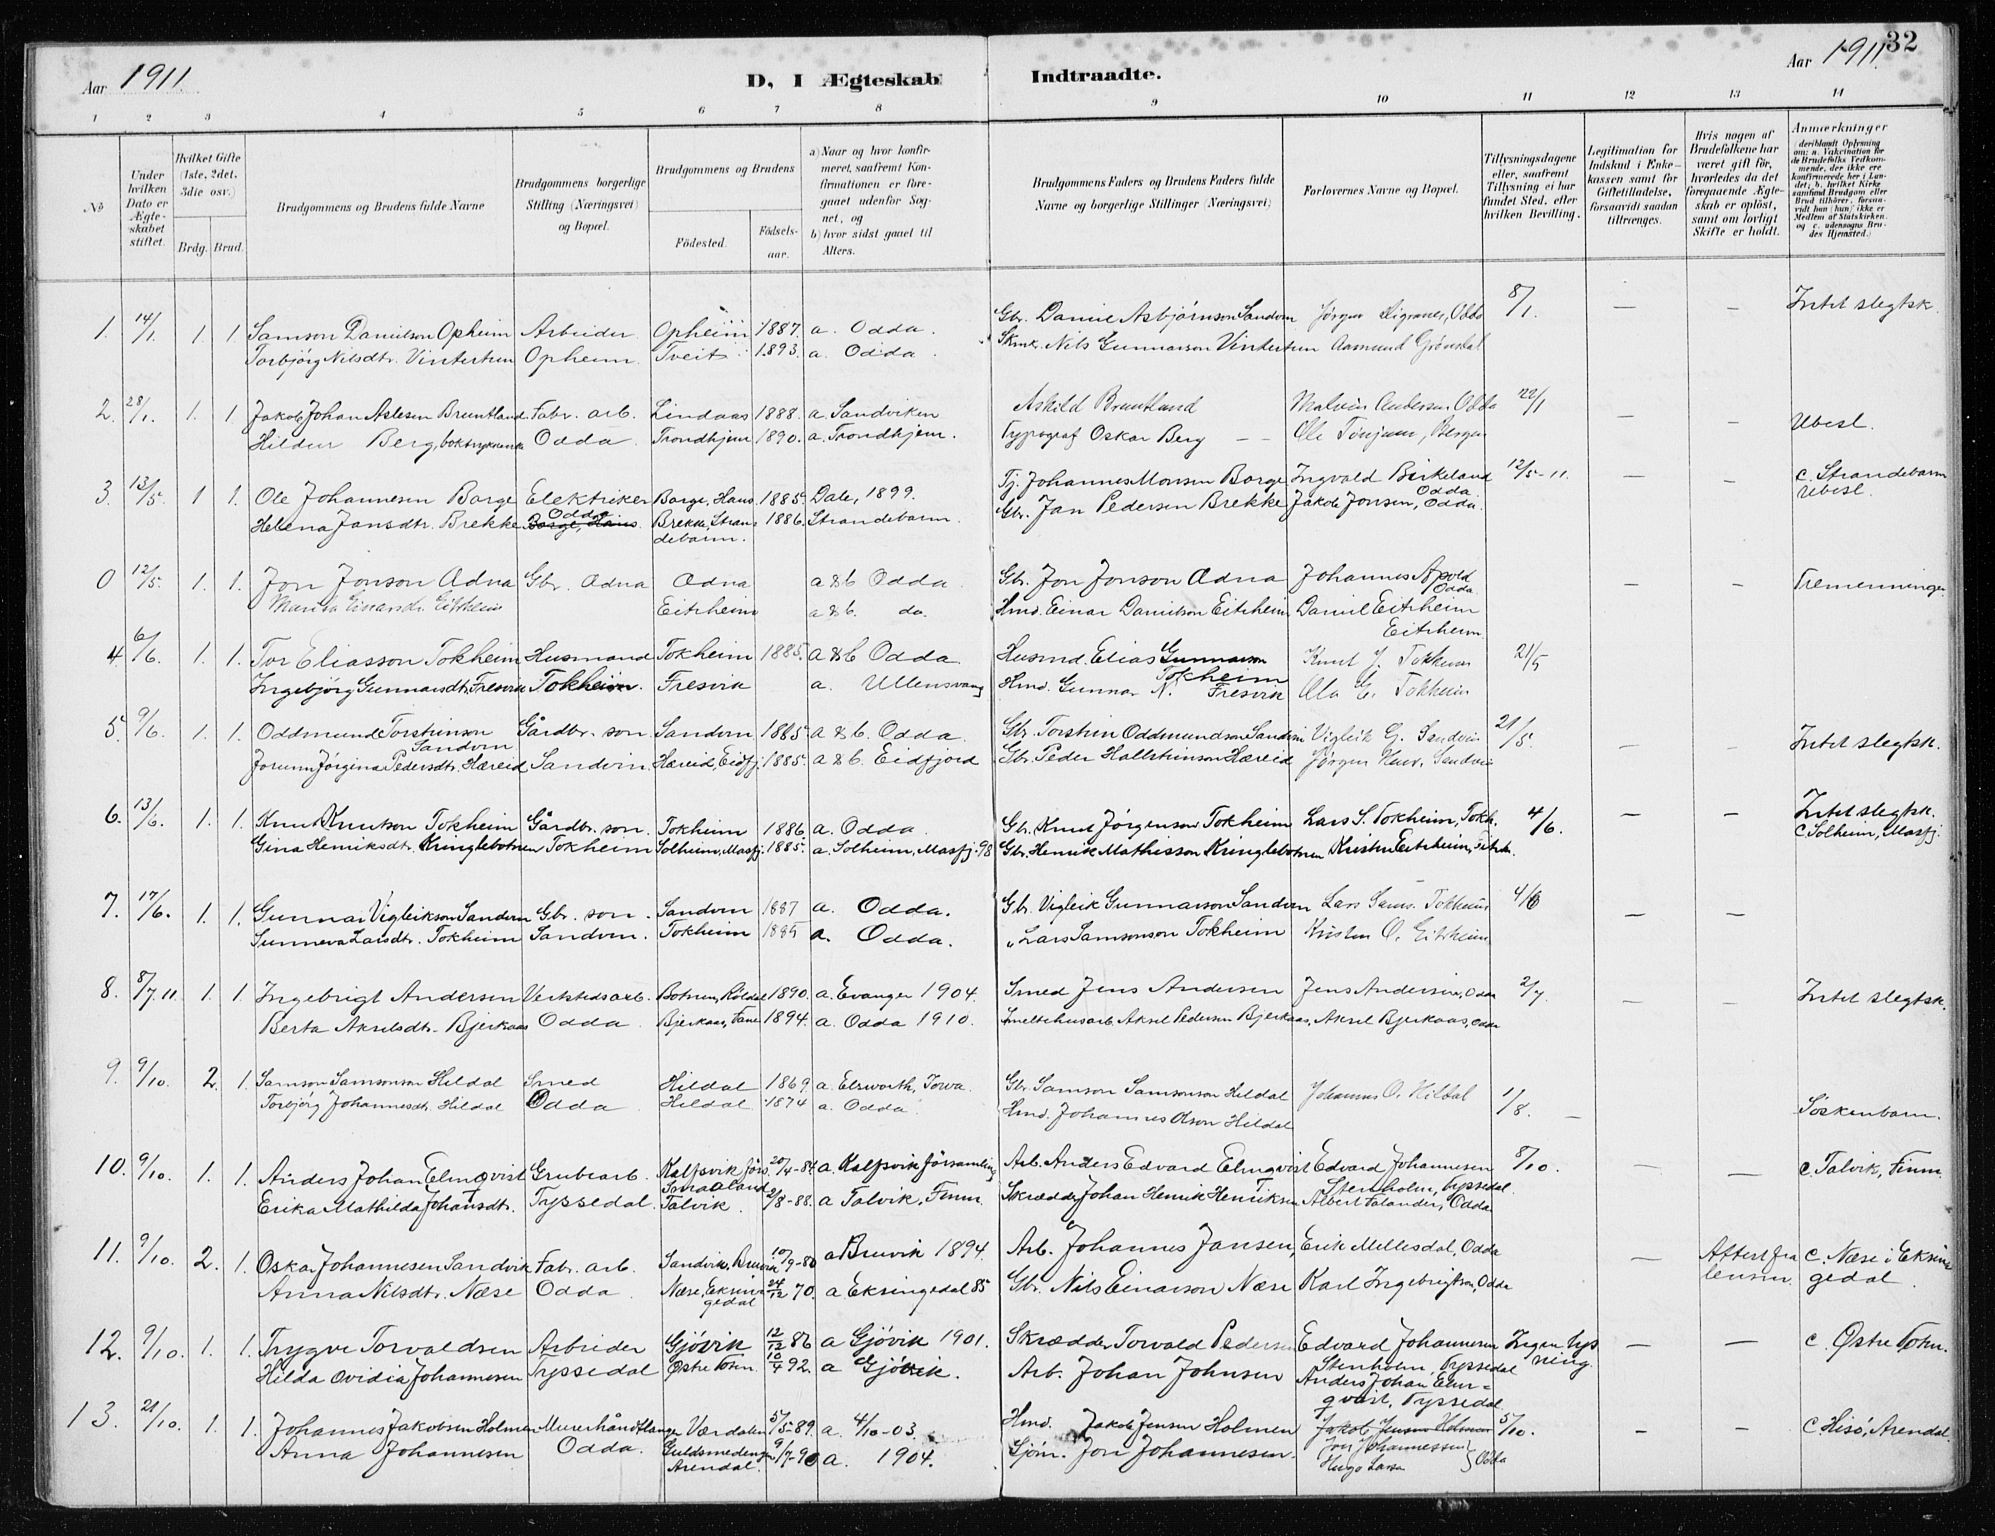 32
Aar 1911. D, I Ægteskab Indtraadte. Aar 1911.
1 2 3 4 5 6 7 8 9 10 11 12 13 14
No
Under hvilken Dato er Ægteskabet stiftet.
Hvilket Gifte (1ste, 2det, 3die osv.)
Brdg. Brud.
Brudgommens og Brudens fulde Navne
Brudgommens borgerlige Stilling (Næringsvei) og Bopæl.
Brudgommens og Brudens
Födested. Födselsaar.
a) Naar og hvor konfirmeret, saafremt Konfirmationen er foregaaet udenfor Sognet, og
b) hvor sidst gaaet til Alters.
Brudgommens Faders og Brudens Faders fulde Navne og borgerlige Stillinger (Næringsvei)
Forlovernes Navne og Bopæl.
Tillysningsdagene eller, saafremt Tillysning ei har fundet Sted, efter hvilken Bevilling.
Legitimation for Indskud i Enkekassen samt for Giftetilladelse, forsaavidt saadan tiltrænges.
Hvis nogen af Brudefolkene har været gift för, hvorledes da det foregaaende Ægteskab er oplöst, samt om lovligt Skifte er holdt.
Anmærkninger (deriblandt Oplysning om: a. Vakcination for de Brudefolks Vedkommende, der ikke ere konfirmerede her i Landet; b. hvilket Kirkesamfund Brudgom eller Brud tilhörer, forsaavidt han (hun) ikke er Medlem af Statskirken, og c. udensogns Brudes Hjemsted.)
1. 14/1. 1. 1. Samson Danielson Opheim Arbeider Opheim 1887. a. Odda. Gbr. Daniel Asbjørnson Sandvin Jørgen Digranes, Odda 8/1. — — Intet slegtsk.
Torbjörg Nilsdtr. Vintertun Opheim. Tveit 1893. a. Odda. Nils Gunnarson Vintertun Aamund Grönsdal
2. 28/1. 1. 1 Jakob Johan Aslesen Bruntland Fabr. arb. Lindaas 1888. a. Sandviken Askild Bruntland Malvin Andersen Odda 22/1 — — Ubesl.
Hildur Berg, Odda Trondhjem 1890. a. Trondhjem. Typograf Oskar Berg — — Ole Tönjum, Bergen
3. 13/5. 1 1. Ole Johannesen Borge Elektriker Borge, Haus 1885. Dale, 1899. Tj. Johannes Monsen Borge Ingvald Birkeland Odda 12/5-11. — — c. Strandebarm Ubesl.
Helena Jansdtr. Brekke Odda Borge, Haus. Brekke, Strandebarm. 1886. Strandebarm. Gbr. Jan Pedersen Brekke Jakob Jonsen, Odda.
0 12/5. 1. 1. Jon Jonson Adna Gbr. Adna Adna a & b Odda. Gbr. Jon Jonson Adna Johannes Apold Odda — — Tremenninger
Marita Einarsdr. Eitrheim Eitrheim a & b. do. Hmd. Einar Danielson Eitrheim Daniel Eitrheim Eitrheim.
4. 6/6. 1. 1. Tor Eliasson Tokheim Husmand Tokheim 1885. a & b Odda Husmd. Elias Gunnarson Tokheim Knut J. Tokheim 21/5
Ingebjörg Gunnarsdtr. Fresvik Tokheim. Fresvik a. Ullensvang Hmd. Gunnar N. Fresvik Ola E. Tokheim
5. 9/6. 1. 1. Oddmund Torsteinson Sandvin Gårdbr. son Sandvin 1885. a & b. Odda. Gbr. Torstein Oddmundson Sandvin Vigleik G. Sandvin 21/5. — — Intet slegtsk.
Jorunn Jörgina Pedersdtr. Hæreid Sandvin. Hæreid, Eidfj. 1885. a & b. Eidfjord Gbr. Peder Hallsteinson Hæreid Jörgen Sandvin
6. 13/6. 1. 1. Knut Knutson Tokheim Gårdbr. son. Tokheim 1886. a. Odda. Gbr. Knut Jörgenson Tokheim Lars S. Tokheim, Tokh. 4/6. — — Intet slegtsk.
Gina Henriksdtr. Kringlebotnen Tokheim Solheim, Masfj. 1885. a. Solheim, Masfj. 98 Gbr. Henrik Mathisson Kringlebotnen Kristen Eitrheim, Eitrh. c Solheim, Masfj.
7. 17/6. 1. 1. Gunnar Vigleikson Sandvin Gbr. son. Sandvin 1887 a. Odda. Gbr. Vigleik Gunnarson Sandvin Lars Sams. Tokheim 4/6 — —
Sunneva Larsdtr. Tokheim Sandvin. Tokheim a. Odda. „ Lars Samsonson Tokheim Kristen O. Eitrheim
8. 8/7.11. 1. 1. Ingebrigt Andersen Verkstedsarb. Botnen, Röldal 1890. a. Evanger 1904. Smed Jens Andersen Jens Andersen, Odda 2/7. — — Intet slegtsk.
Berta Akselsdtr. Bjerkaas Odda. Bjerkaas, 1894. a. Odda 1910. Smeltehusarb. Aksel Pedersen Bjerkaas, Aksel Bjerkaas, Odda
9. 9/10. 2. 1. Samson Samsonson Hildal Smed Hildal 1869. a. Elsworth, Iowa. Gbr Samson Samsonson Hildal Johannes O. Hildal 1/8. — Söskenbarn.
Torbjörg Johannesdtr. Hildal Odda. Hildal 1874 a. Odda. Hmd. Johannes Olson Hildal
10. 9/10. 1. 1. Anders Johan Elmqvist Grubearb. Kalfsvik förs. Smaaland 20/4-84. a. Kalfsvik församling Arb. Anders Edvard Elmqvist Edvard Johannesen Stenholm, Tyssedal. 8/10. — — c. Talvik, Finm.
Erika Mathilda Johansdtr. Tyssedal. Talvik. 2/8-88. a Talvik, Finm. Skrædder Johan Henrik Henriksen Albert Falander, Odda
11. 9/10. 2. 1. Oskar Johannesen Sandvik Fabr. arb. Sandvik, Bruvik 10/9-80 a Bruvik 1894. Arb. Johannes Jansen, Erik Mellesdal, Odda — c. Næse i Eksingedal.
Anna Nilsdtr. Næse Odda. Næse, Eksingedal 24/12 70. a Eksingedal 85 Gbr. Nils Einarson Næse Karl Ingebrigtsen, Odda
12. 9/10. 1. 1. Trygve Torvaldsen Arbeider Gjövik 12/12 86 a Gjövik 1901. Skrædder Torvald Pedersen Edvard Johannesen Stenholm, Tyssedal Ingen lysning. — — c. Østre Toten.
Hilda Ovidia Johannesen Tyssedal Østre Toten. 10/4 92. a Gjövik. Arb. Johan Johnsen Anders Johan Elmqvist, Tyssedal.
13. 21/10. 1. 1. Johannes Jakobsen Holmen Murerhåndlanger Værdalen 5/5-89. a. 4/10-03. Hmd. Jakob Jensen Holmen Jakob Jensen Holmen 5/10. — — c Hisö, Arendal.
Anna Johannesen Odda. Guldsmedengen Arendal. 9/7-90 a. 1904. Sjöm. Jon Johannesen. Jon Johannessen
Hugo Larsen } Odda